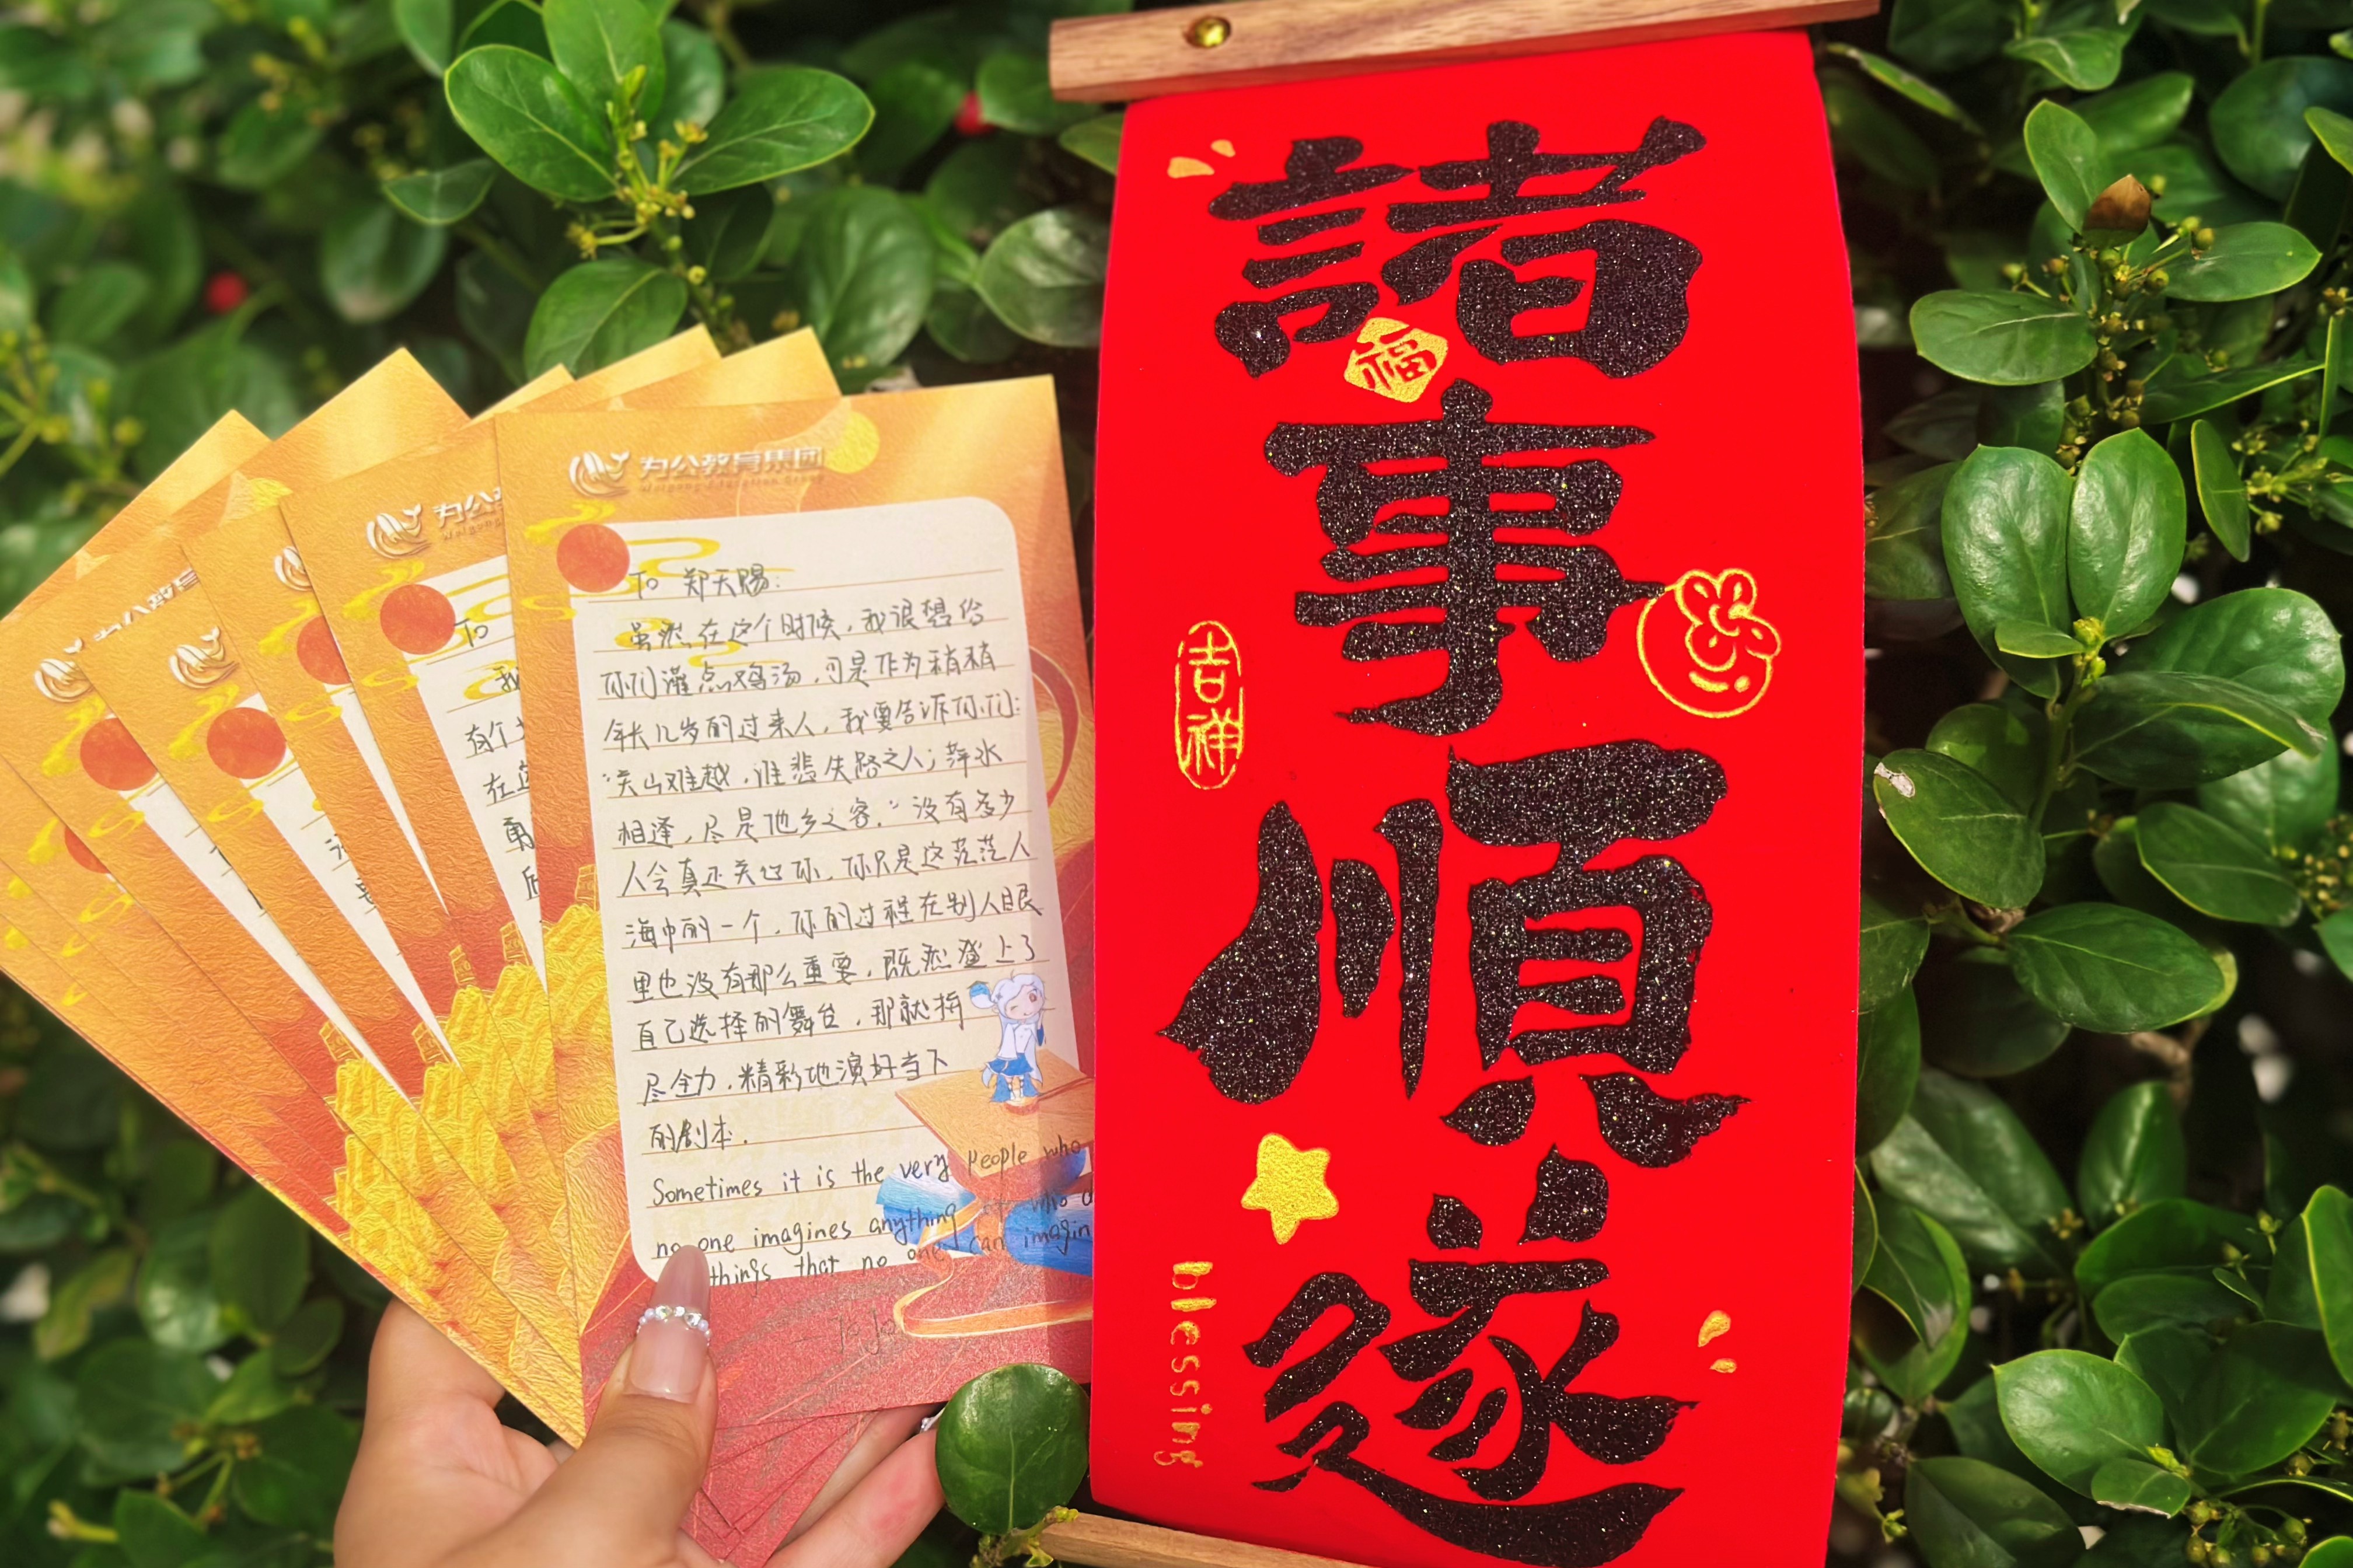 为公教育集团
Weigong Education Group
To 郑天赐:
虽然在这个时候,我很想给
你们灌点鸡汤,可是作为稍稍
年长几岁的过来人,我要告诉你们:
"关山难越,谁悲失路之人;萍水
相逢,尽是他乡之客."没有多少
人会真正关心你,你只是这茫茫人
海中的一个,你的过程在别人眼
里也没有那么重要,既然登上了
自己选择的舞台,那就拼
尽全力,精彩地演好当下
的剧本.
Sometimes it is the very people who
no one imagines anything of who
things that no one can imagin
为公
To
我
有个
在这
勇
諸事順遂
福
吉祥
blessing